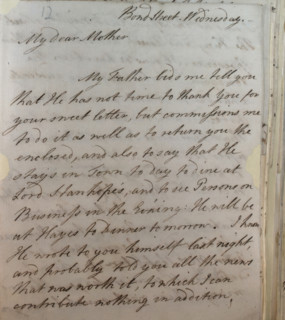 12
Bond Street Wednesday.
My dear Mother
My Father bids me tell you
that He has not time to thank You for
your sweet letter, but commissions me
to do it as well as to return you the
enclosed, and also to say that He
stays in Town to day to dine at
Lord Stanhopes, and to see Persons on
Business in the Evening. He will be
at Hayes to dinner to morrow. I hear
He wrote to you himself last night,
and probably told you all the news
that was worth it, to which I can
contribute nothing in addition,